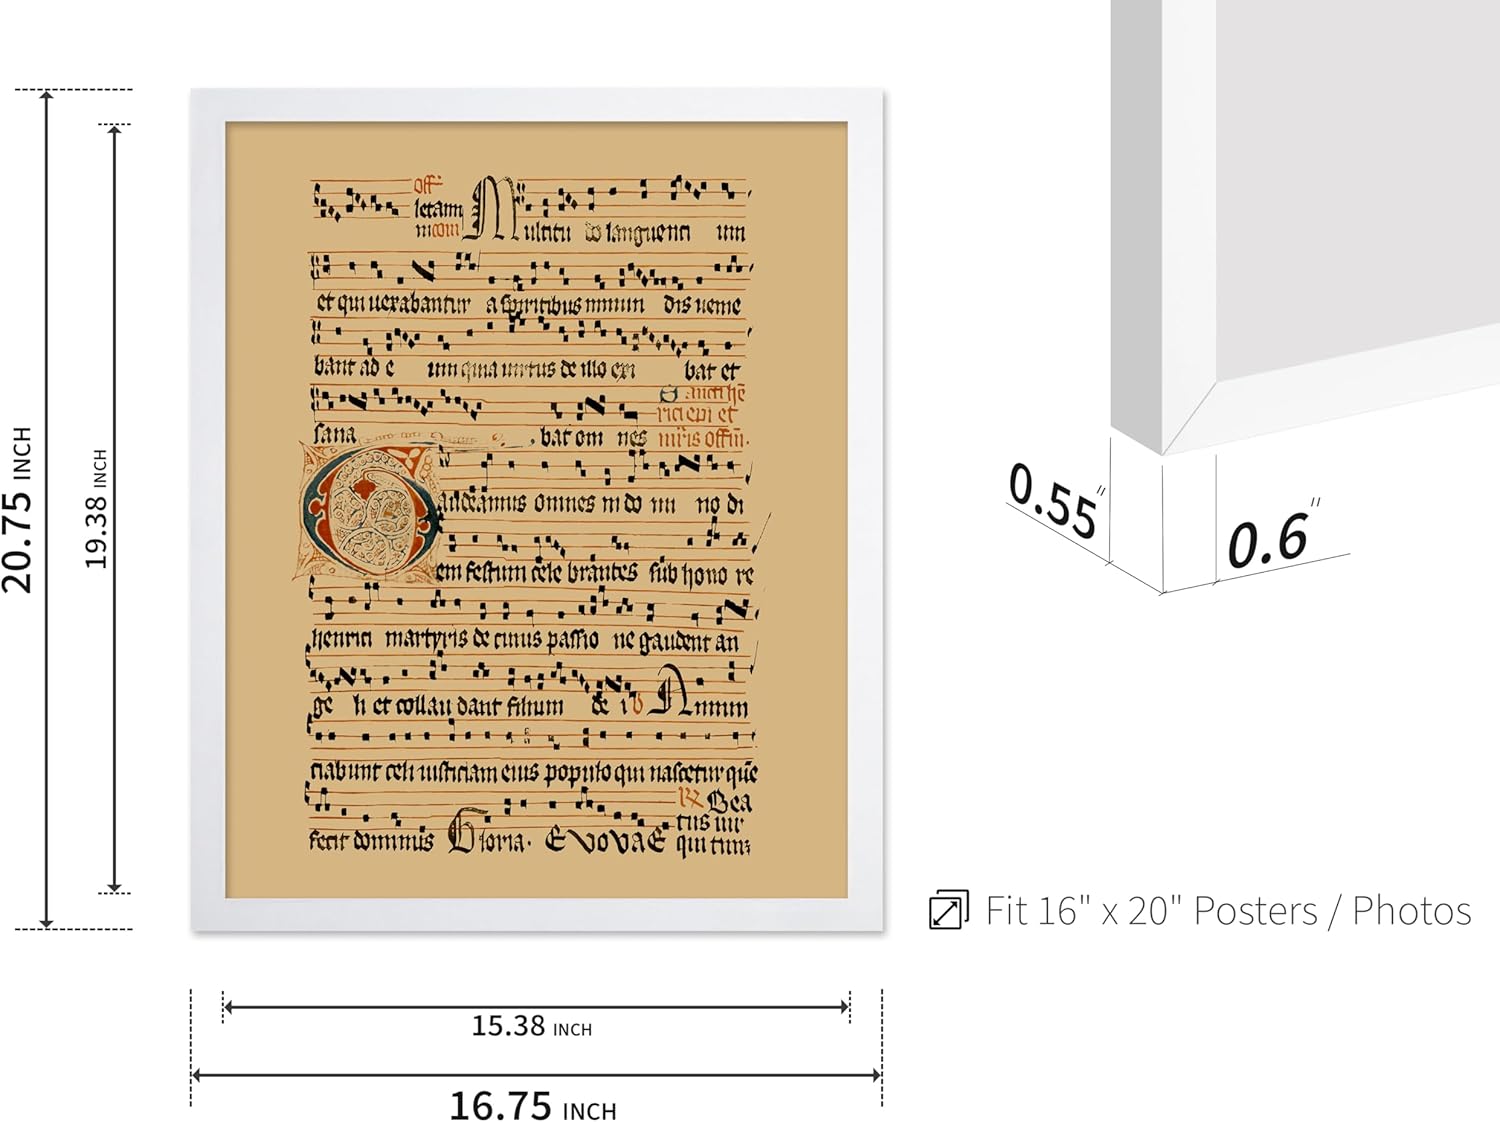 20.75 INCH
19.38 INCH
Off
letam
Multitu do languenti
et qui uexabantur a spiritibus inmun dis ueme
bant ad e um quia uirtus de illo exi bat et
sancti he
rici epi et
sana bat om nes mris offm.
Gaudeamus omnes in do mi no di
em festum cele brantes sub hono re
henrici martyris de cuius passio ne gaudent an
ge li et collau dant filium de i V Annun
ciabunt celi iusticiam eius populo qui nascetur que
Bea
tus uir
fecit dominus Gloria. EVOVAE qui tim
15.38 INCH
16.75 INCH
0.55"
0.6"
Fit 16" x 20" Posters / Photos